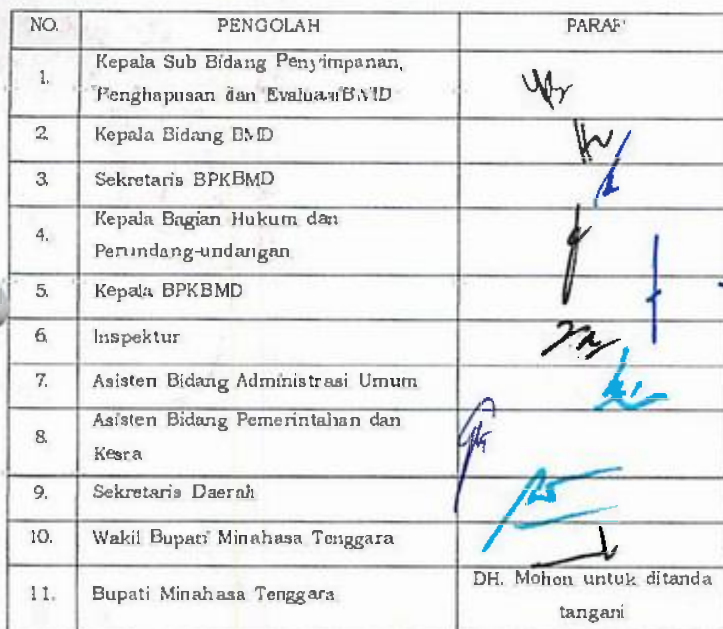 NO. PENGOLAH PARAF
1. Kepala Sub Bidang Penyimpanan,
Penghapusan dan Evaluasi BMD
2. Kepala Bidang BMD
3. Sekretaris BPKBMD
4. Kepala Bagian Hukum dan
Perundang-undangan
5. Kepala BPKBMD
6. Inspektur
7. Asisten Bidang Administrasi Umum
8. Asisten Bidang Pemerintahan dan
Kesra
9. Sekretaris Daerah
10. Wakil Bupati Minahasa Tenggara
11. Bupati Minahasa Tenggara DH. Mohon untuk ditanda
tangani